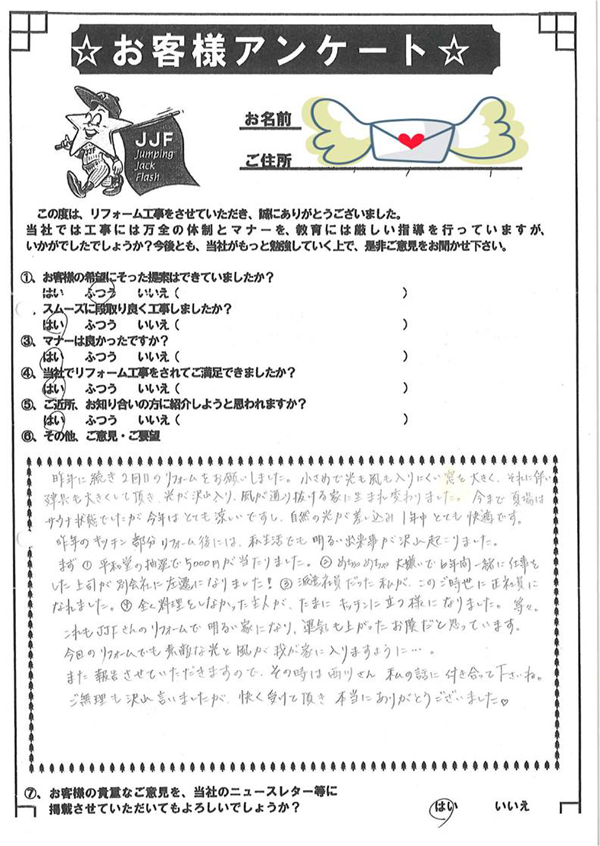 ☆お客様アンケート☆
JJF
Jumping
Jack
Flash
お名前
ご住所
この度は、リフォーム工事をさせていただき、誠にありがとうございました。
当社では工事には万全の体制とマナーを、教育には厳しい指導を行っていますが、
いかがでしたでしょうか？今後とも、当社がもっと勉強していく上で、是非ご意見をお聞かせ下さい。
①、お客様の希望にそった提案はできていましたか？
はい ふつう いいえ（ ）
スムーズに段取り良く工事しましたか？
はい ふつう いいえ（ ）
③、マナーは良かったですか？
はい ふつう いいえ（ ）
④、当社でリフォーム工事をされてご満足できましたか？
はい ふつう いいえ（ ）
⑤、ご近所、お知り合いの方に紹介しようと思われますか？
はい ふつう いいえ（ ）
⑥、その他、ご意見・ご要望
昨年に続き2回目のリフォームをお願いしました。小さめで光も風も入りにくい窓を大きく、それに伴い
寝室も大きくして頂き、光が沢山入り、風が通り抜ける家に生まれ変わりました。今まで夏場は
サウナ状態でしたが今年はとても涼しいですし、自然の光が差し込み1年中とても快適です。
昨年のキッチン部分リフォーム後には、私生活でも明るい出来事が沢山起こりました。
まず①平和堂の抽選で5000円が当たりました。②めちゃめちゃ大嫌いで6年間一緒に仕事を
した上司が別会社に左遷になりました！③派遣社員だった私が、このご時世に正社員に
なれました。④全く料理をしなかった主人が、たまにキッチンに立つ様になりました。等々。
これもJJFさんのリフォームで明るい家になり、運気も上がったお陰だと思っています。
今回のリフォームでも素敵な光と風が我が家に入りますように…。
また報告させていただきますので、その時は西川さん私の話に付き合って下さいね。
ご無理も沢山言いましたが、快く受けて頂き本当にありがとうございました♡
⑦、お客様の貴重なご意見を、当社のニュースレター等に
掲載させていただいてもよろしいでしょうか？ はい いいえ